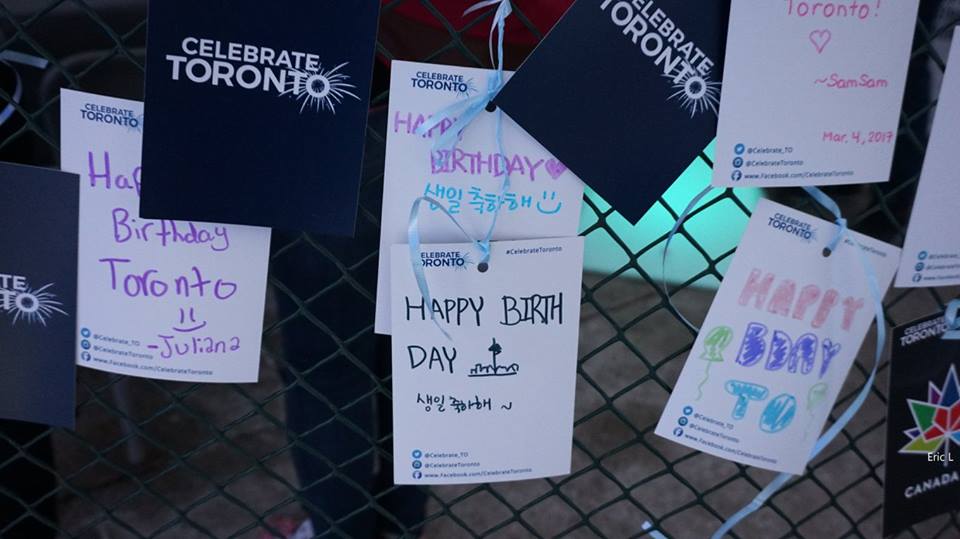 CELEBRATE
TORONTO
Birthday
Toronto
-Juliana
@Celebrate_TO
@CelebrateToronto
www.Facebook.com/CelebrateToronto
CELEBRATE
TORONTO
CELEBRATE
TORONTO
HAPPY
BIRTHDAY
생일 축하해
CELEBRATE
TORONTO
#CelebrateToronto
HAPPY BIRTH
DAY
생일 축하해 ~
@Celebrate_TO
@CelebrateToronto
www.Facebook.com/CelebrateToronto
CELEBRATE
TORONTO
Toronto!
~SamSam
Mar. 4, 2017
@Celebrate_TO
@CelebrateToronto
www.Facebook.com/CelebrateToronto
CELEBRATE
TORONTO
#CelebrateToronto
HAPPY
BDAY
TO
@Celebrate_TO
@CelebrateToronto
www.Facebook.com/CelebrateToronto
CELEBRATE
TORONTO
Eric L
CANADA